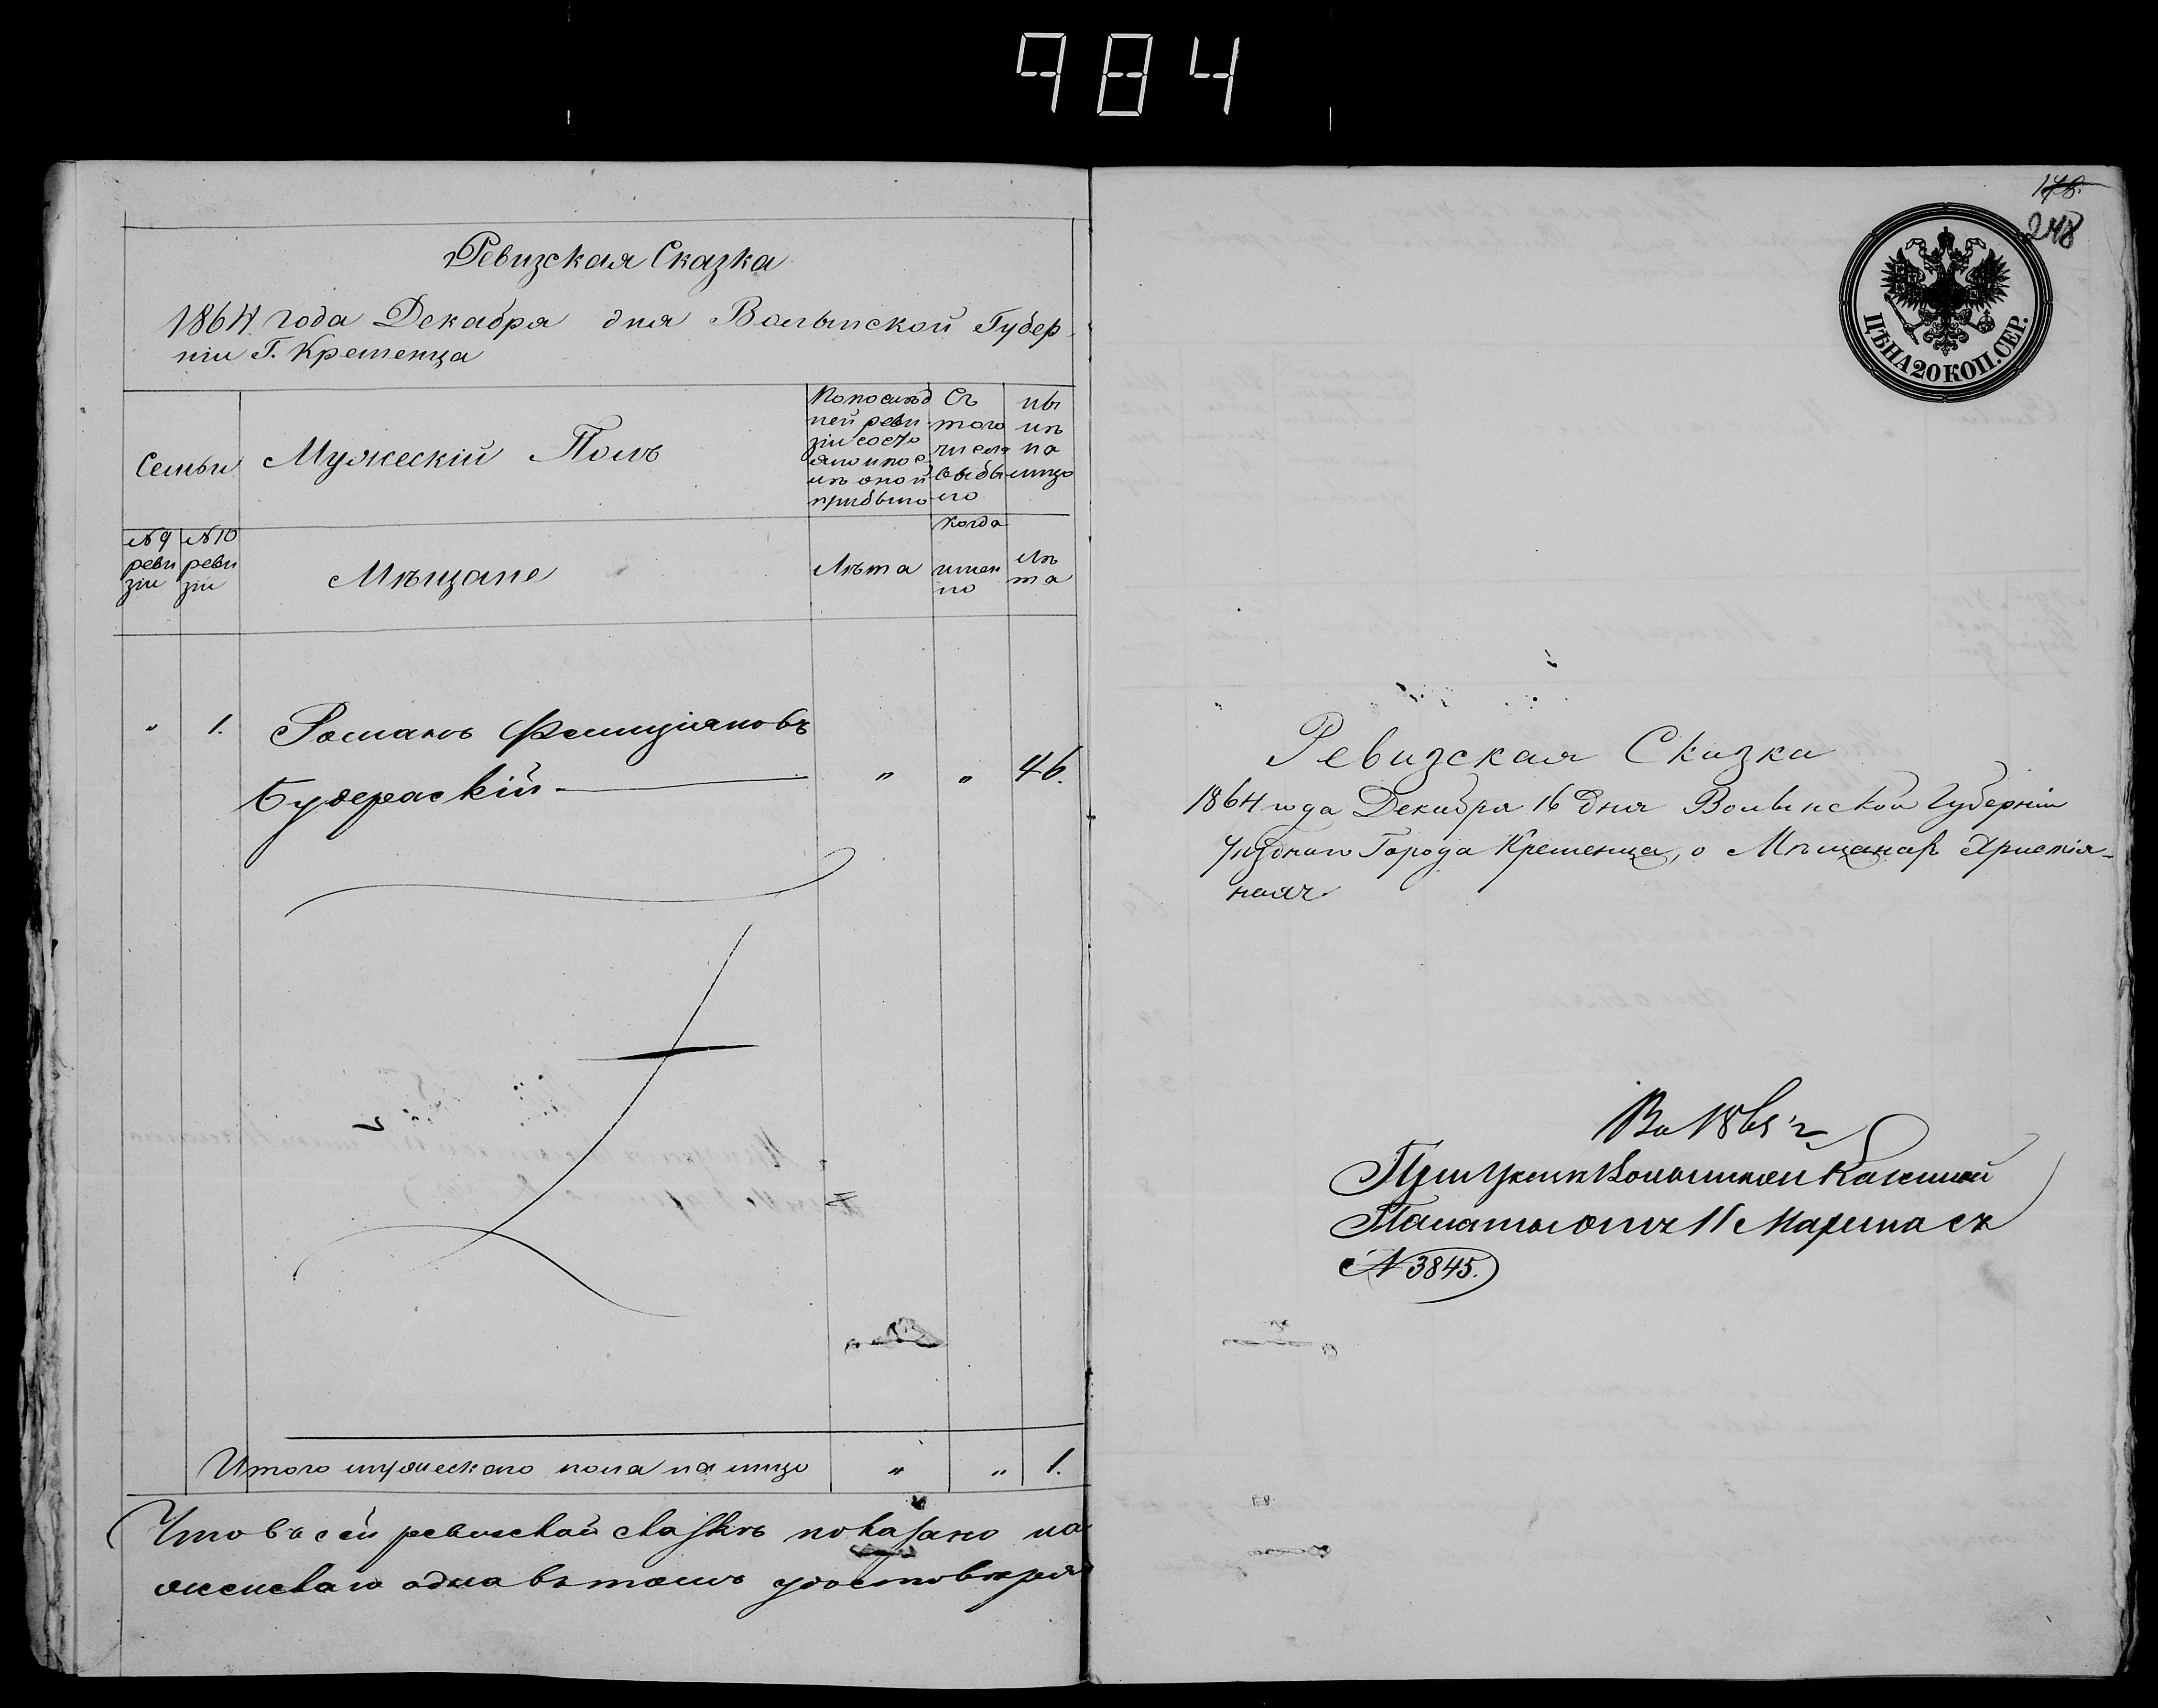 984
Ревизская Сказка
1864 года Декабря дня Волынской Губер
ніи Г. Кременца
Семьи
Мужескій Полъ
По послѣд
ней реви
зіи состо
яло и пос
лѣ оной
прибыло
Съ
того
числа
выбы
ло
ны
нѣ
на
лицо
№ 9
реви
зіи
№ 10
реви
зіи
Мѣщане
Лѣта
когда
имен
но
Лѣ
та
" 1. Романъ Фелиціяновъ
Будераскій " " 46.
Итого мужескаго пола на лицо " " 1.
Что въ сей ревизской сказкѣ показано на
одна въ томъ удостовѣря
178.
248
ЦѢНА 20 КОП. СЕР.
Ревизская Сказка
1864 года Декабря 16 дня Волынской Губерніи
Уѣзднаго Города Кременца, о Мѣщанахъ Христія-
нахъ
1865 г.
При Указѣ Волынской Казенной
Палаты отъ 11 Марта съ
№ 3845.